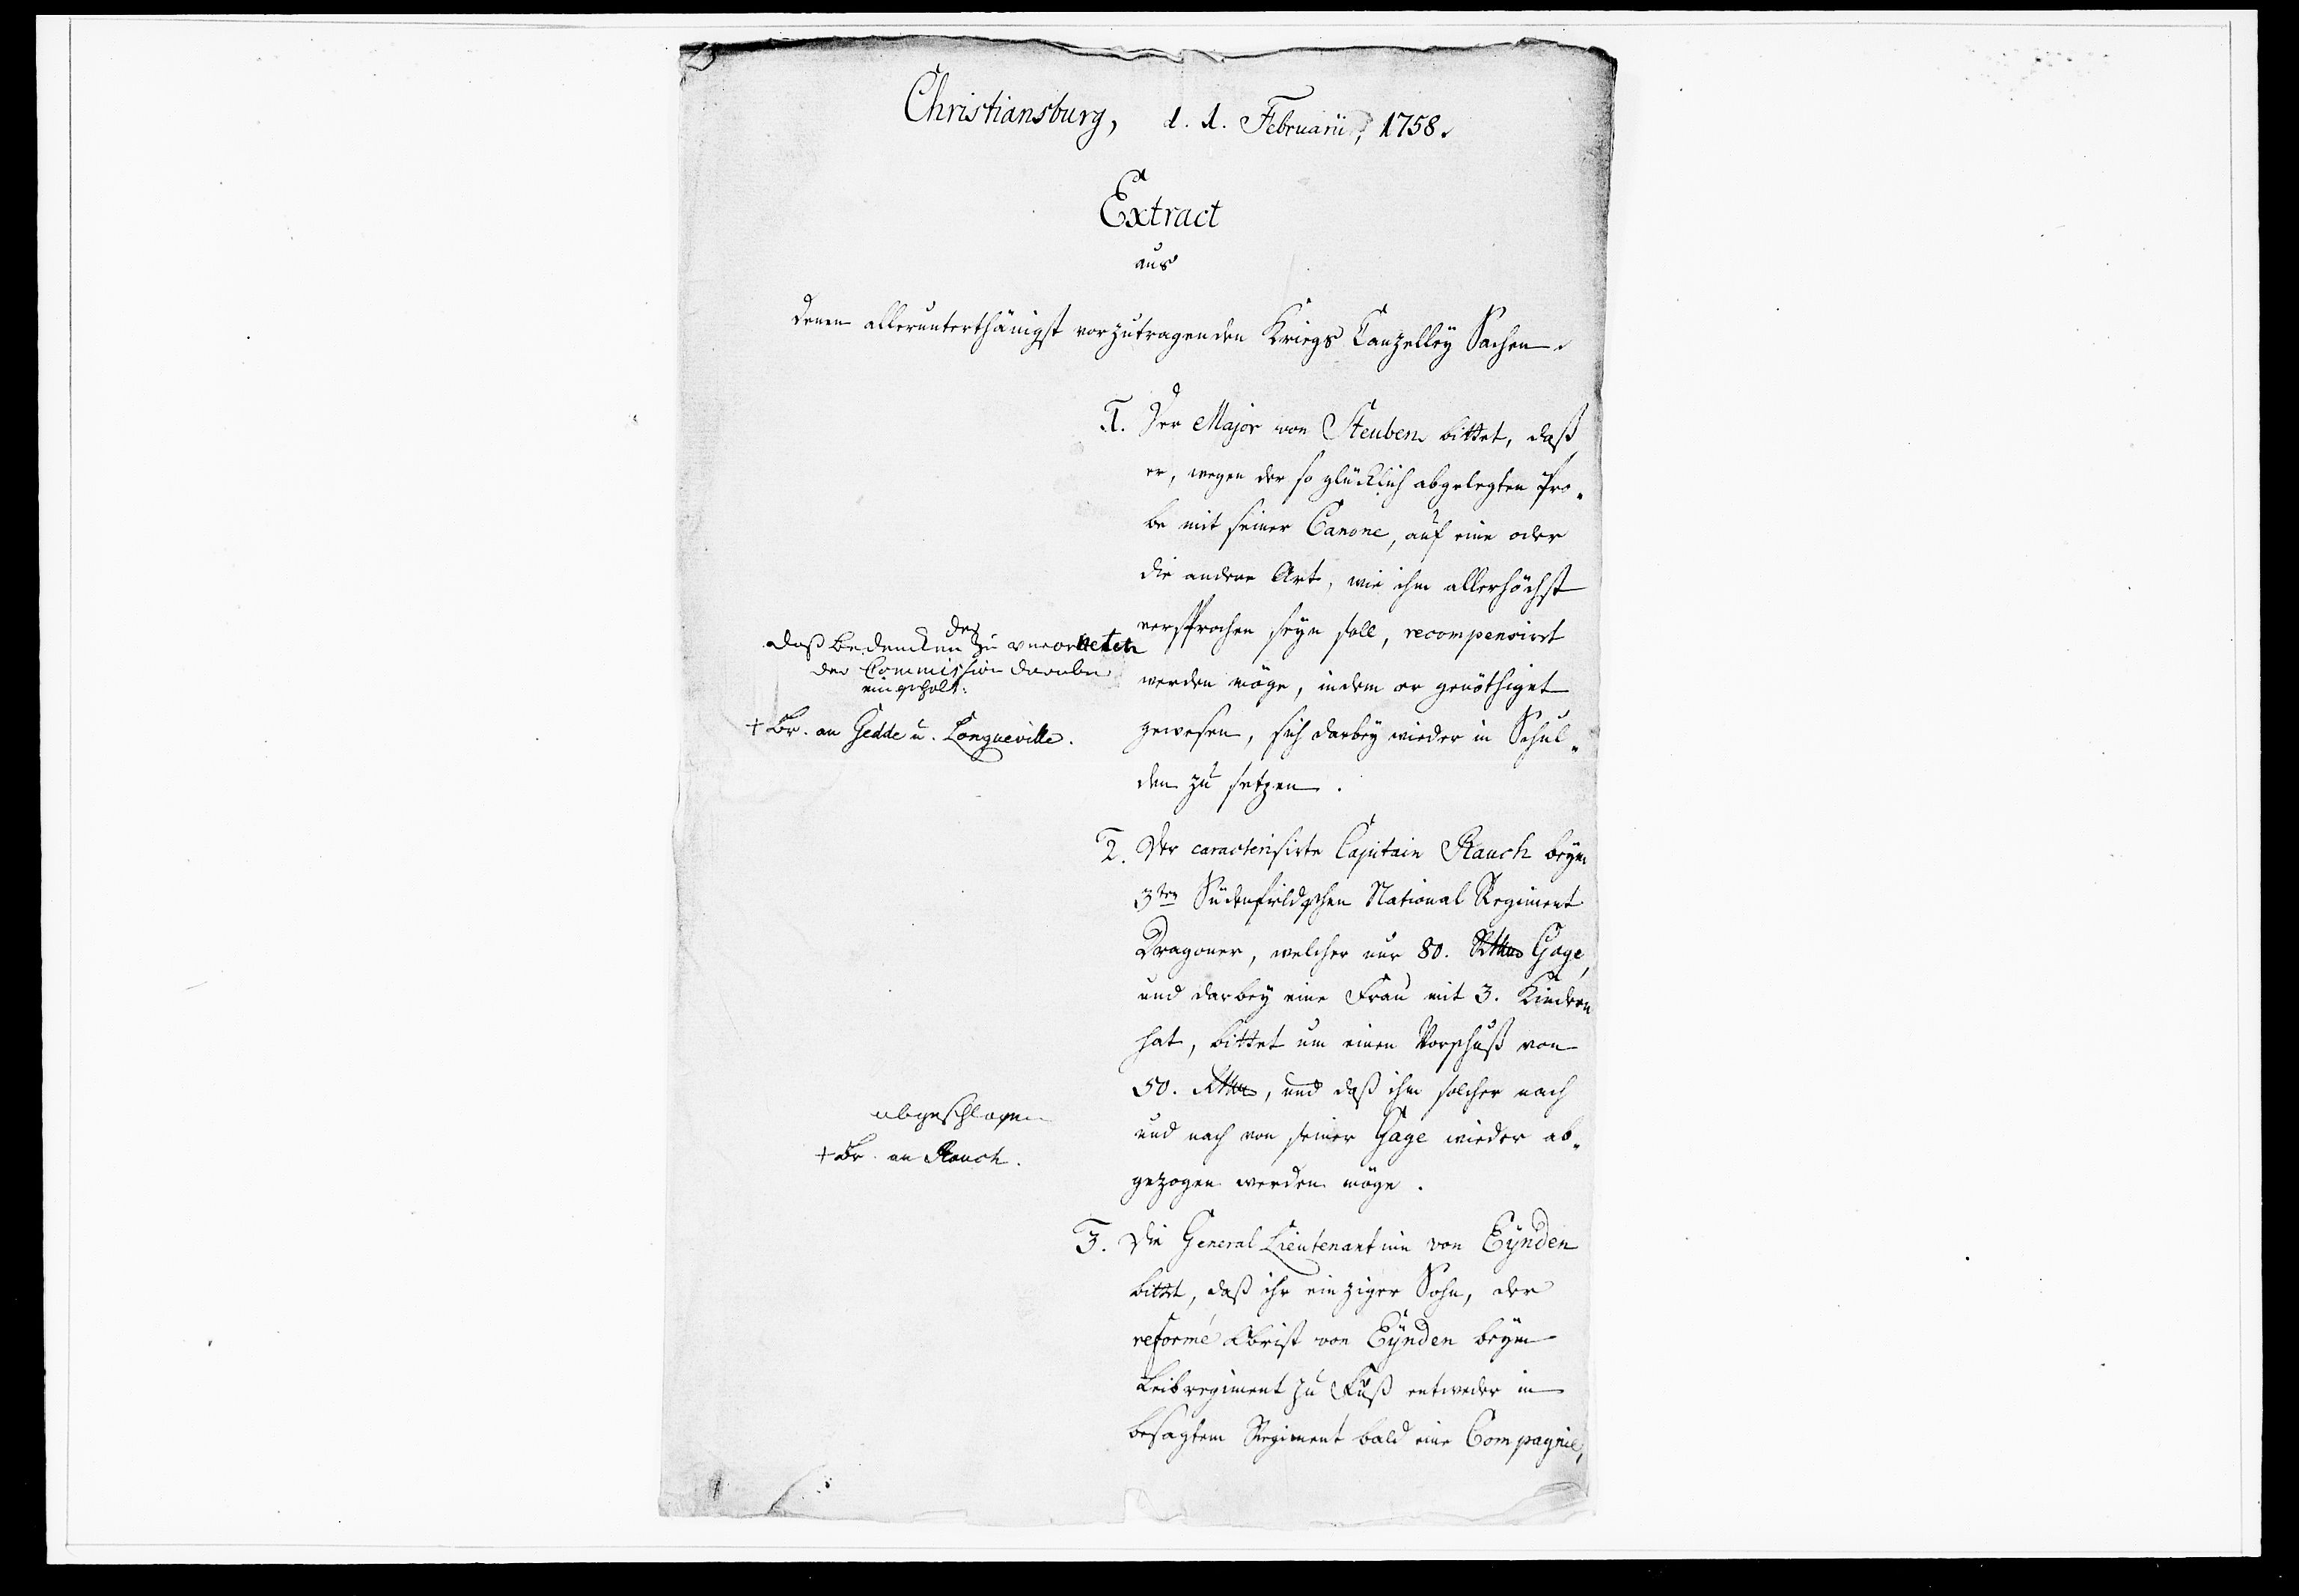 Christiansburg, d. 1. Februarii, 1758.
Extract
aus
denen allerunterthänigst vorzutragenden Kriegs Canzelley Sachen.
1. Der Major von Steuben bittet, daß
er, wegen der so glücklich abgelegten Pro-
be mit seiner Canone, auf eine oder
die andere Art, wie ihm allerhöchst
versprochen seyn soll, recompensirt
werden möge, indem er genöthiget
gewesen, sich darbey wieder in Schul-
den zu setzen.
daß Bedencken der zu verordneten
der Commission darüber
eingeholt:
+ Br. an Gedde u. Longueville.
2. Der caracterisirte Capitain Rauch beym
3ten Südenfieldschen National Regiment
Dragoner, welcher nur 80. Rthlr Gage,
und darbey eine Frau mit 3. Kindern
hat, bittet um einen Vorschuß von
50. Rthlr, und daß ihm solcher nach
und nach von seiner Gage wieder ab-
gezogen werden möge.
abgeschlagen
+ Br. an Rauch.
3. Die General Lieutenantinn von Eynden
bittet, daß ihr einziger Sohn, der
reformé Obrist von Eynden beym
Leibregiment zu Fuß entweder in
besagtem Regiment bald eine Compagnie,